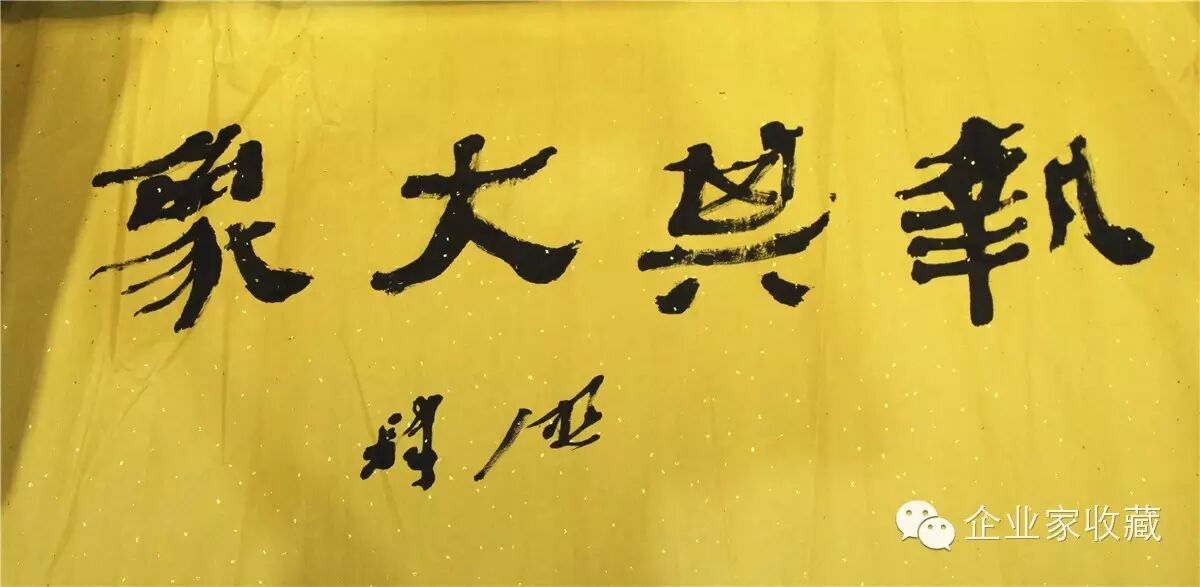 執其大象
企业家收藏